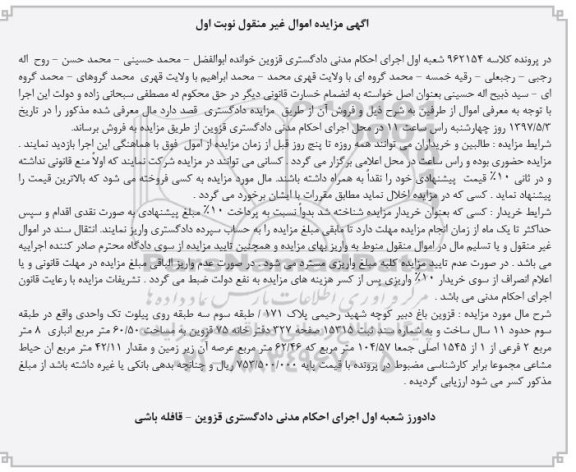 آگهی مزایده اموال غیر منقول نوبت اول
در پرونده کلاسه ۹۶۲۱۵۴ شعبه اول اجرای احکام مدنی دادگستری قزوین خوانده ابوالفضل - محمد حسینی - محمد حسن - روح اله
رجبی - رجبعلی - رقیه خمسه - محمد گروه ای با ولایت قهری محمد - محمد ابراهیم با ولایت قهری محمد گروهای - محمد گروه
ای - سید ذبیح اله حسینی بعنوان اصل خواسته به انضمام خسارت قانونی دیگر در حق محکوم له مصطفی سبحانی زاده و دولت این اجرا
با توجه به معرفی اموال از طرفین به شرح ذیل و فروش آن از طریق مزایده دادگستری قصد دارد مال معرفی شده مذکور را در تاریخ
۱۳۹۷/۵/۳ روز چهارشنبه راس ساعت ۱۱ در محل اجرای احکام مدنی دادگستری قزوین از طریق مزایده به فروش برساند.
شرایط مزایده : طالبین و خریداران می توانند همه روزه تا پنج روز قبل از زمان مزایده از اموال فوق با هماهنگی این اجرا بازدید نمایند .
مزایده حضوری بوده و راس ساعت در محل اعلامی برگزار می گردد . کسانی می توانند در مزایده شرکت نمایند که اولاً منع قانونی نداشته
و در ثانی ۱۰٪ قیمت پیشنهادی خود را نقداً به همراه داشته باشند. مال مورد مزایده به کسی فروخته می شود که بالاترین قیمت را
پیشنهاد نماید . کسی که در مزایده اخلال نماید مطابق مقررات با ایشان برخورد می گردد .
شرایط خریدار : کسی که بعنوان خریدار مزایده شناخته شد بدواً نسبت به پرداخت ۱۰٪ مبلغ پیشنهادی به صورت نقدی اقدام و سپس
حداکثر تا یک ماه از زمان انجام مزایده مهلت دارد تا مابقی مبلغ مزایده را به حساب سپرده دادگستری واریز نمایند. انتقال سند در اموال
غیر منقول و یا تسلیم مال در اموال منقول منوط به واریز بهای مزایده و همچنین تایید مزایده از سوی دادگاه محترم صادر کننده اجراییه
می باشد . در صورت عدم تایید مزایده کلیه مبلغ واریزی مسترد می شود . در صورت عدم واریز الباقی مبلغ مزایده در مهلت قانونی و یا
اعلام انصراف از سوی خریدار ۱۰٪ واریزی پس از کسر هزینه های مزایده به نفع دولت ضبط می گردد . تشریفات مزایده با رعایت قانون
اجرای احکام مدنی می باشد .
شرح مال مورد مزایده : قزوین باغ دبیر کوچه شهید رحیمی پلاک ۱۷۱/ طبقه سوم سه طبقه روی پیلوت تک واحدی واقع در طبقه
سوم حدود ۱۱ سال ساخت و به شماره سند ثبت ۱۵۳۱۵ صفحه ۳۲۷ دفتر خانه ۷۵ قزوین به مساحت ۶۰/۵۰ متر مربع انباری ۸ متر
مربع ۲ فرعی از ۱ از ۱۵۴۵ اصلی جمعا ۱۰۴/۵۷ متر مربع که ۶۲/۴۶ متر مربع عرصه آن زیر زمین و مقدار ۴۲/۱۱ متر مربع آن حیاط
مشاعی مجموعا برابر کارشناسی مضبوط در پرونده با قیمت پایه ۷۵۳/۵۰۰/۰۰۰ ریال و چنانچه بدهی بانکی یا غیره داشته باشد از مبلغ
مذکور کسر می شود ارزیابی گردیده .
دادورز شعبه اول اجرای احکام مدنی دادگستری قزوین - قافله باشی